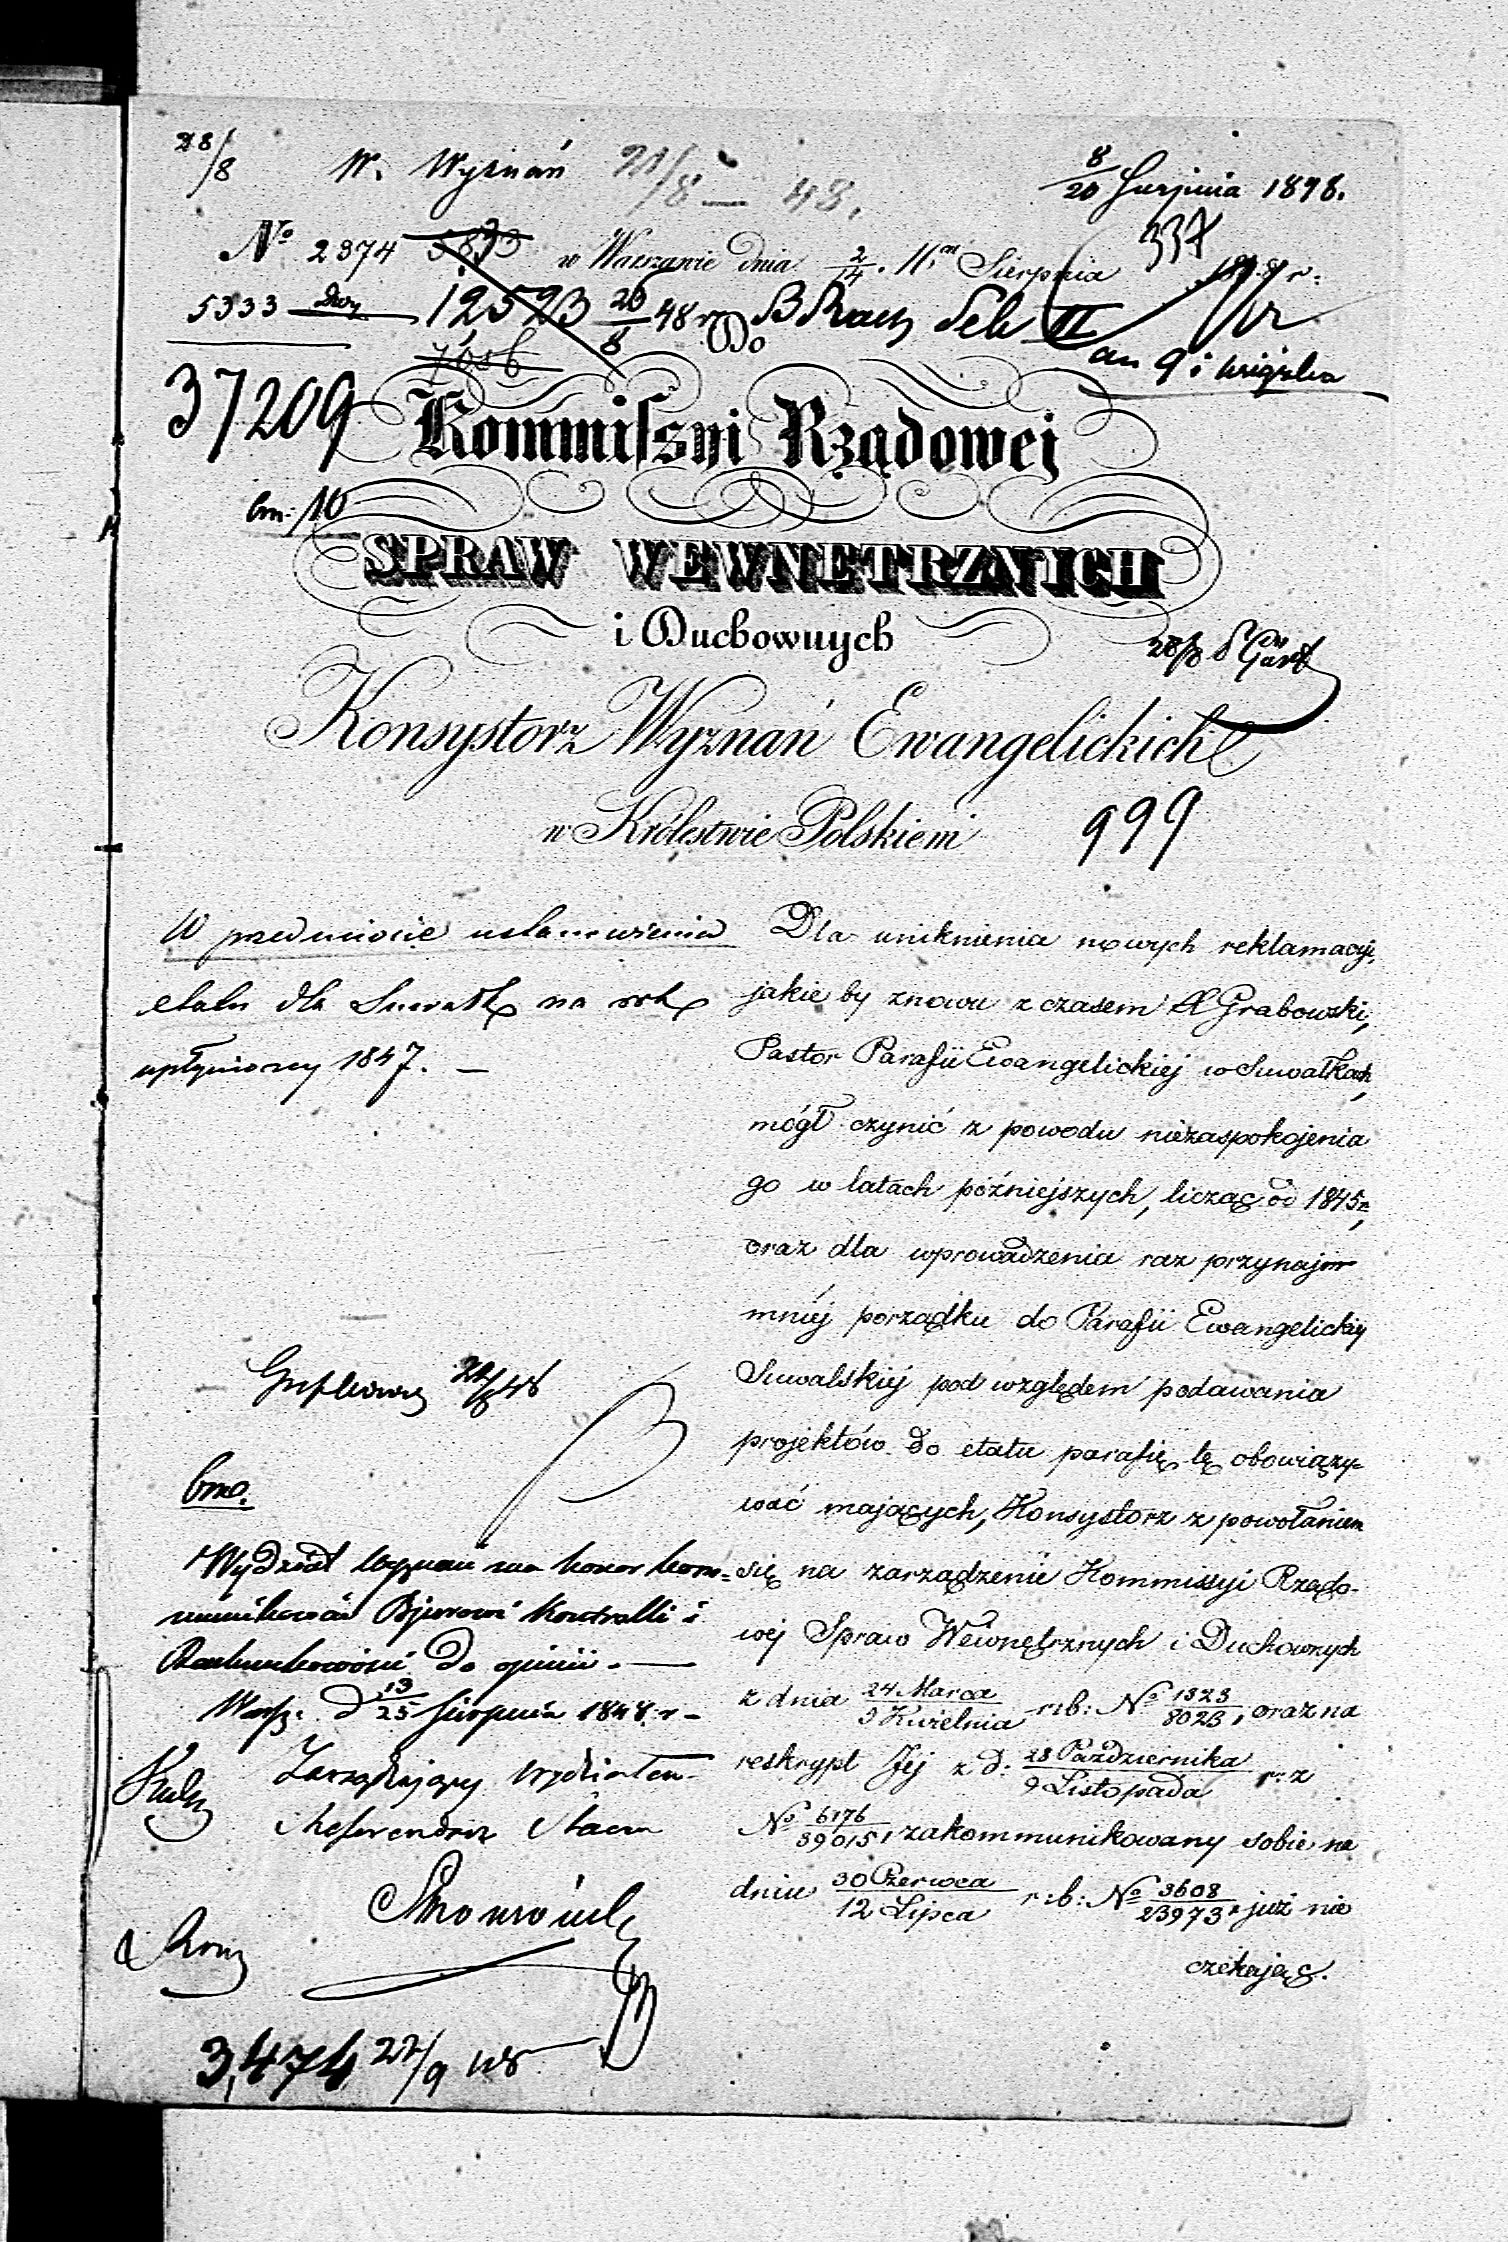 28/8 W. Wyznań 21/8 — 48.
8/20 Sierpnia 1848.
No 2374 5873 w Warszawie dnia 2/14 Sierpnia 184 r:
337
5333 12593 26/8 48 r Do B Rach Sek II
7056
37209
Kommissyi Rządowej
bm: 10
SPRAW WEWNETRZNICH
i Duchownych
28/8
Konsystorz Wyznań Ewangelickich
w Królestwie Polskiem
999
W przedmiocie ustanowienia
etatu dla Suwałk na rok
upłyniony 1847. —
Dla uniknienia nowych reklamacyi,
jakie by znowu z czasem X Grabowski,
Pastor Parafii Ewangelickiej w Suwałkach,
mógł czynić z powodu niezaspokojenia
go w latach późniejszych, licząc od 1845 r,
oraz dla wprowadzenia raz przynaj-
mniéj porządku do Parafii Ewangelickiej
Suwalskiéj pod względem podawania
projektów do etatu parafię tę obowiązy-
wać mających, Konsystorz z powołaniem
się na zarządzenie Kommissyi Rządo-
wéj Spraw Wewnętrznych i Duchownych
z dnia 24 Marca/5 Kwietnia r: b: No 1323/8023, oraz na
reskrypt Jéj z d: 28 Października/9 Listopada r: z
No 6176/39015, zakommunikowany sobie na
dniu 30 Czerwca/12 Lipca r: b: No 3608/23973, już nie
czekając.
22/8 48
bmo.
Wydział Wyznań ma honor kom-
munikować Bjurowi Kontrolli i
Rachunkowości do opinii. —
Warsz. d 13/25 Sierpnia 1848 r —
Zarządzający Wydziałem
Referendarz Stanu
3,474 27/9 48